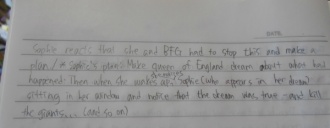 NOTE
Sophie reacts that she and BFG had to stop this and make a
plan / * Sophie's plans: Make queen of England dream about when has
happened. Then when she wakes up Sophie (who appears in her dream)
sitting in her window and notice that the dream was true and kill
the giants... (and so on)